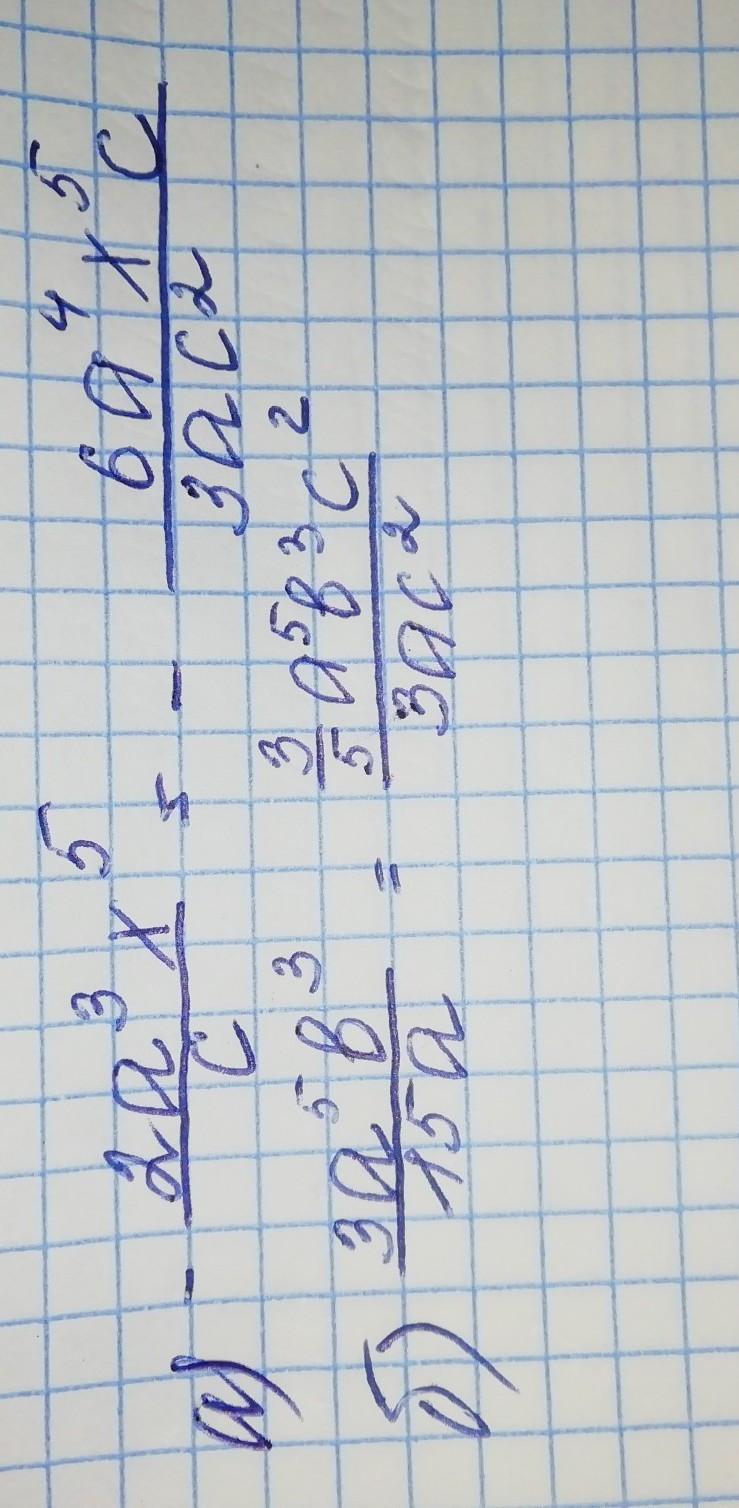 а) - 2a³x⁵/c = - 6a⁴x⁵c/3ac²
б) 3a⁵b³/15a = 3/5 a⁵b³c²/3ac²